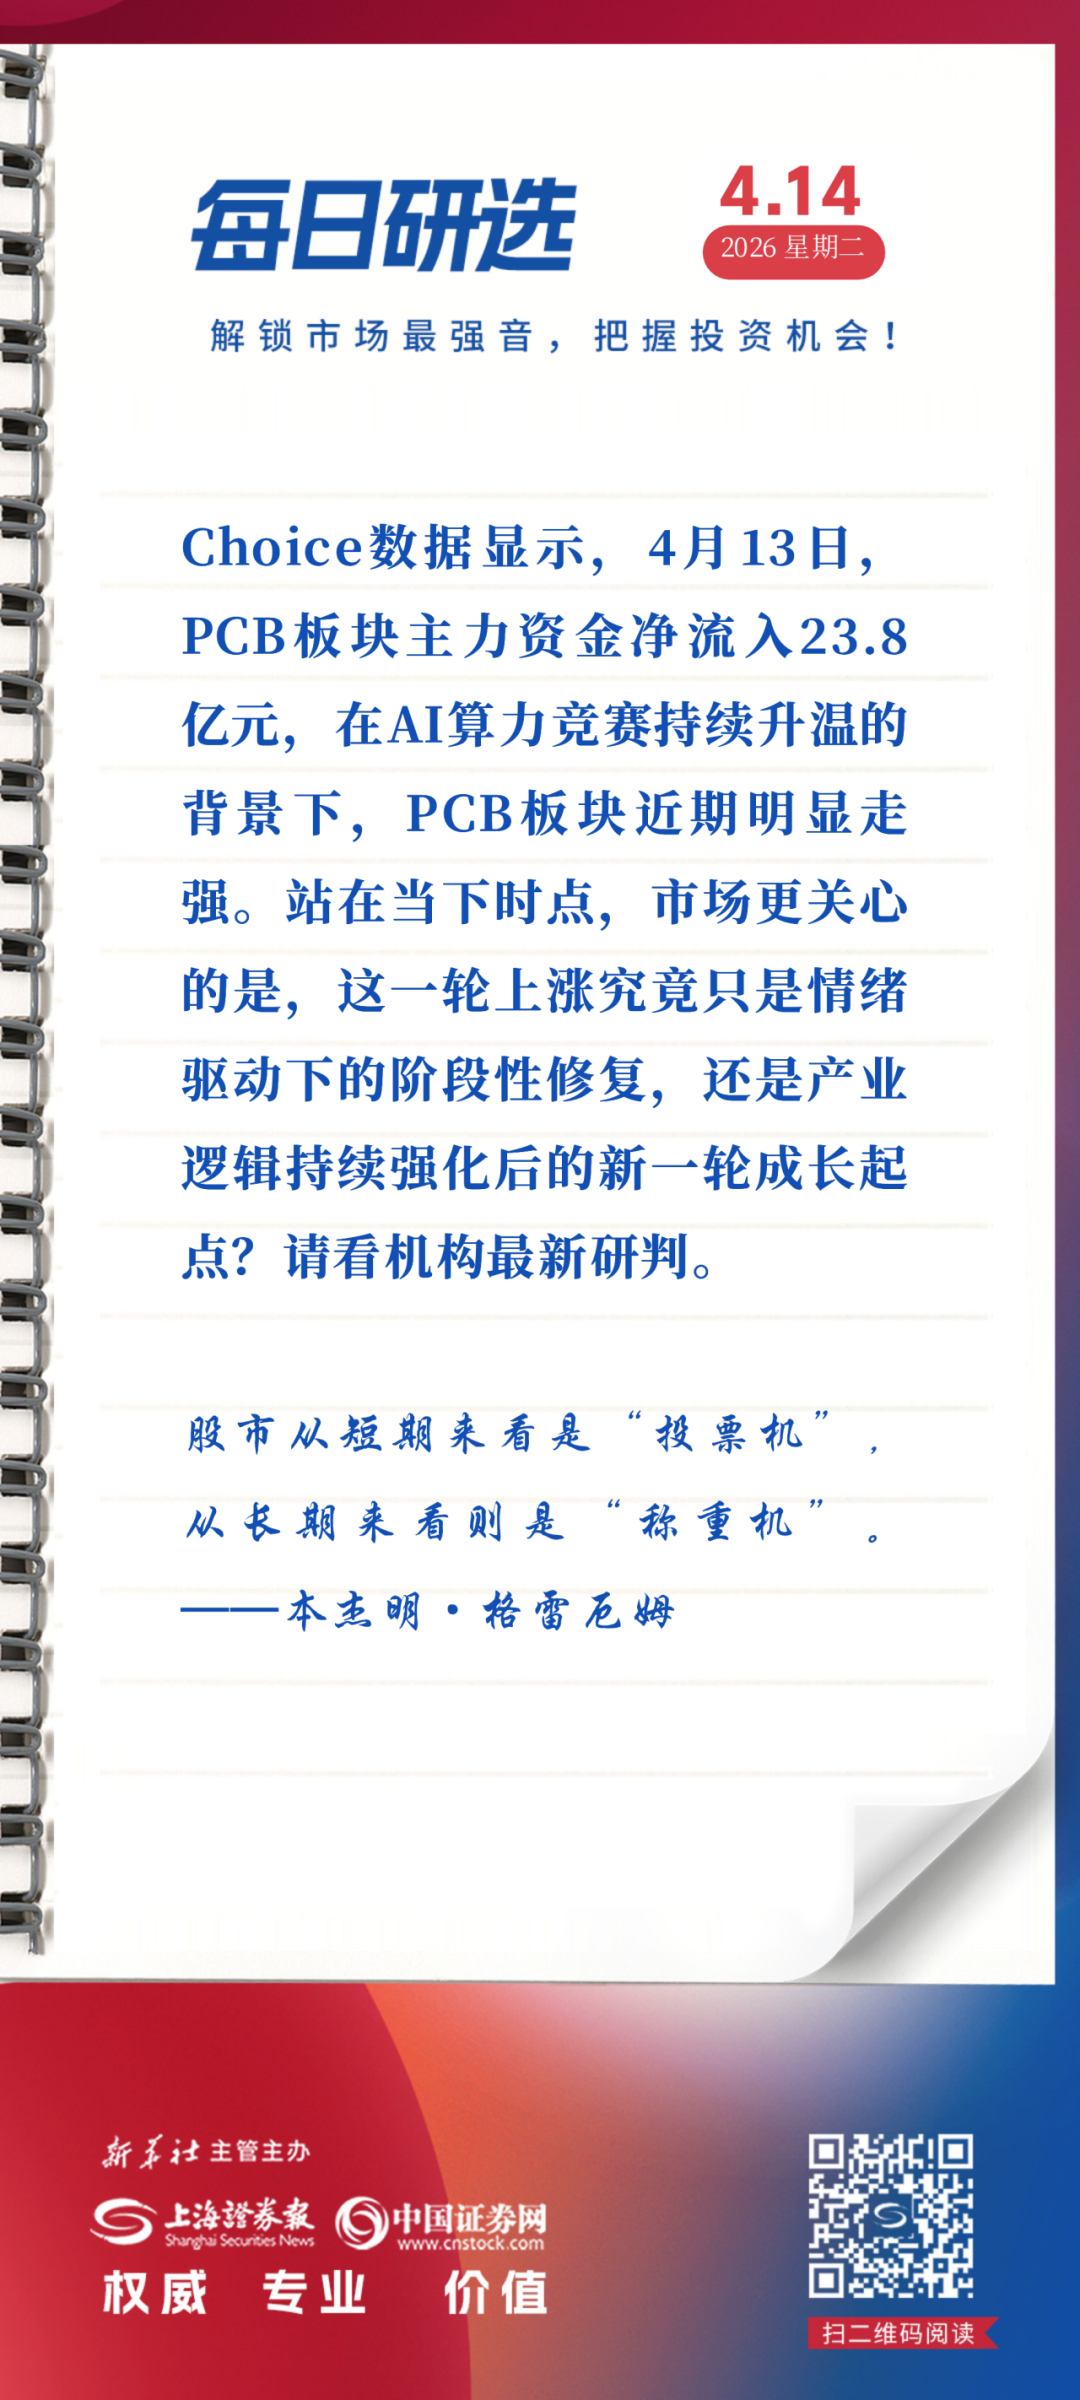 每日研选
4.14
2026 星期二
解锁市场最强音，把握投资机会！
Choice数据显示，4月13日，
PCB板块主力资金净流入23.8
亿元，在AI算力竞赛持续升温的
背景下，PCB板块近期明显走
强。站在当下时点，市场更关心
的是，这一轮上涨究竟只是情绪
驱动下的阶段性修复，还是产业
逻辑持续强化后的新一轮成长起
点？请看机构最新研判。
股市从短期来看是“投票机”，
从长期来看则是“称重机”。
——本杰明·格雷厄姆
新华社 主管主办
上海證券報
Shanghai Securities News
中国证券网
www.cnstock.com
权威 专业 价值
扫二维码阅读